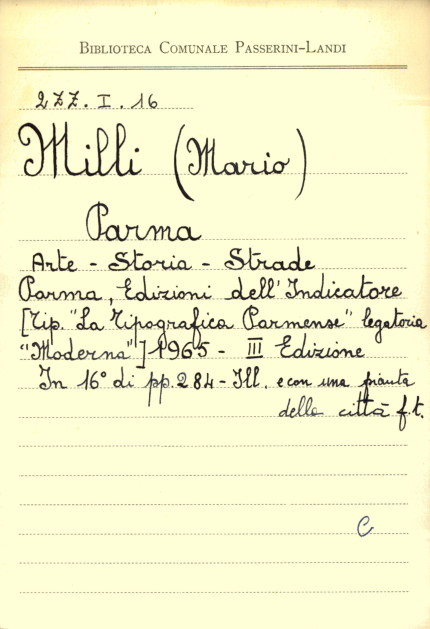 BIBLIOTECA COMUNALE PASSERINI-LANDI
2ZZ. I. 16
Milli (Mario)
Parma
Arte - Storia - Strade
Parma, Edizioni dell'Indicatore
[Tip. "La Tipografica Parmense" legatoria
"Moderna"] 1965 - III Edizione
In 16° di pp. 284 - Ill. e con una pianta
della città f.t.
C